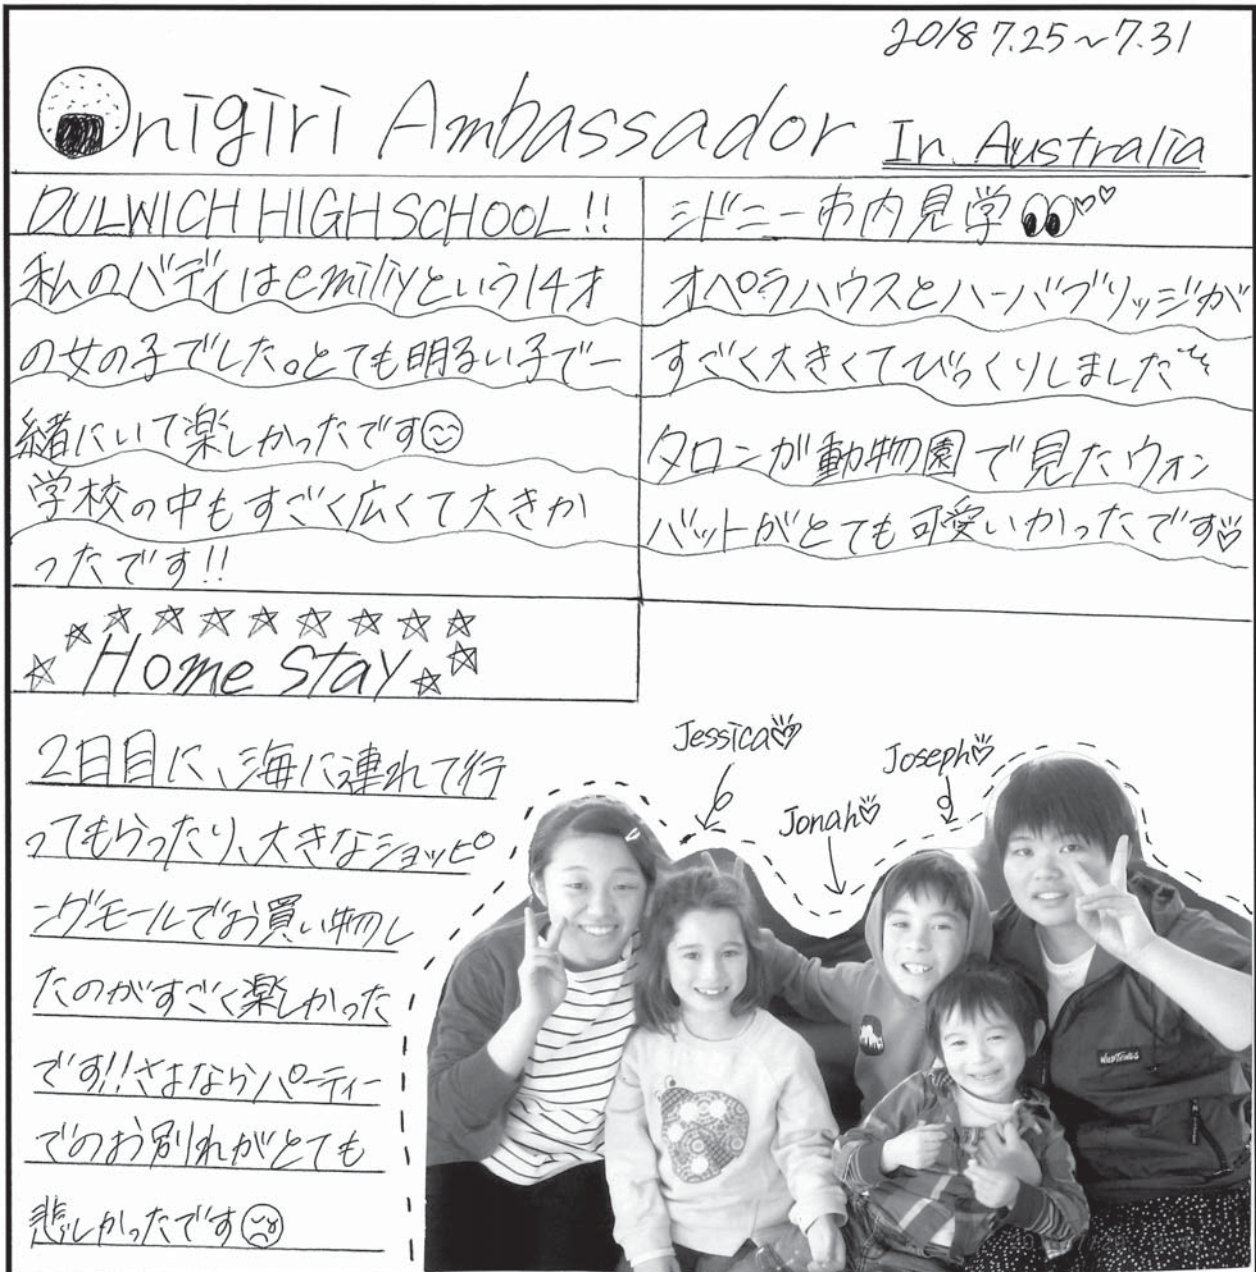 2018 7.25~7.31
Onigiri Ambassador In Australia
DULWICH HIGH SCHOOL!!
私のバディはemiliyという14才
の女の子でした。とても明るい子で一
緒にいて楽しかったです
学校の中もすごく広くて大きか
ったです!!
シドニー市内見学
オペラハウスとハーバブリッジが
すごく大きくてびっくりしました
タロンガ動物園で見たウォン
バットがとても可愛いかったです
Home Stay
2日目に、海に連れて行
ってもらったり、大きなショッピ
ングモールでお買い物し
たのがすごく楽しかった
です!!さよならパーティー
でのお別れがとても
悲しかったです
Jessica
Joseph
Jonah
WILDTHINGS